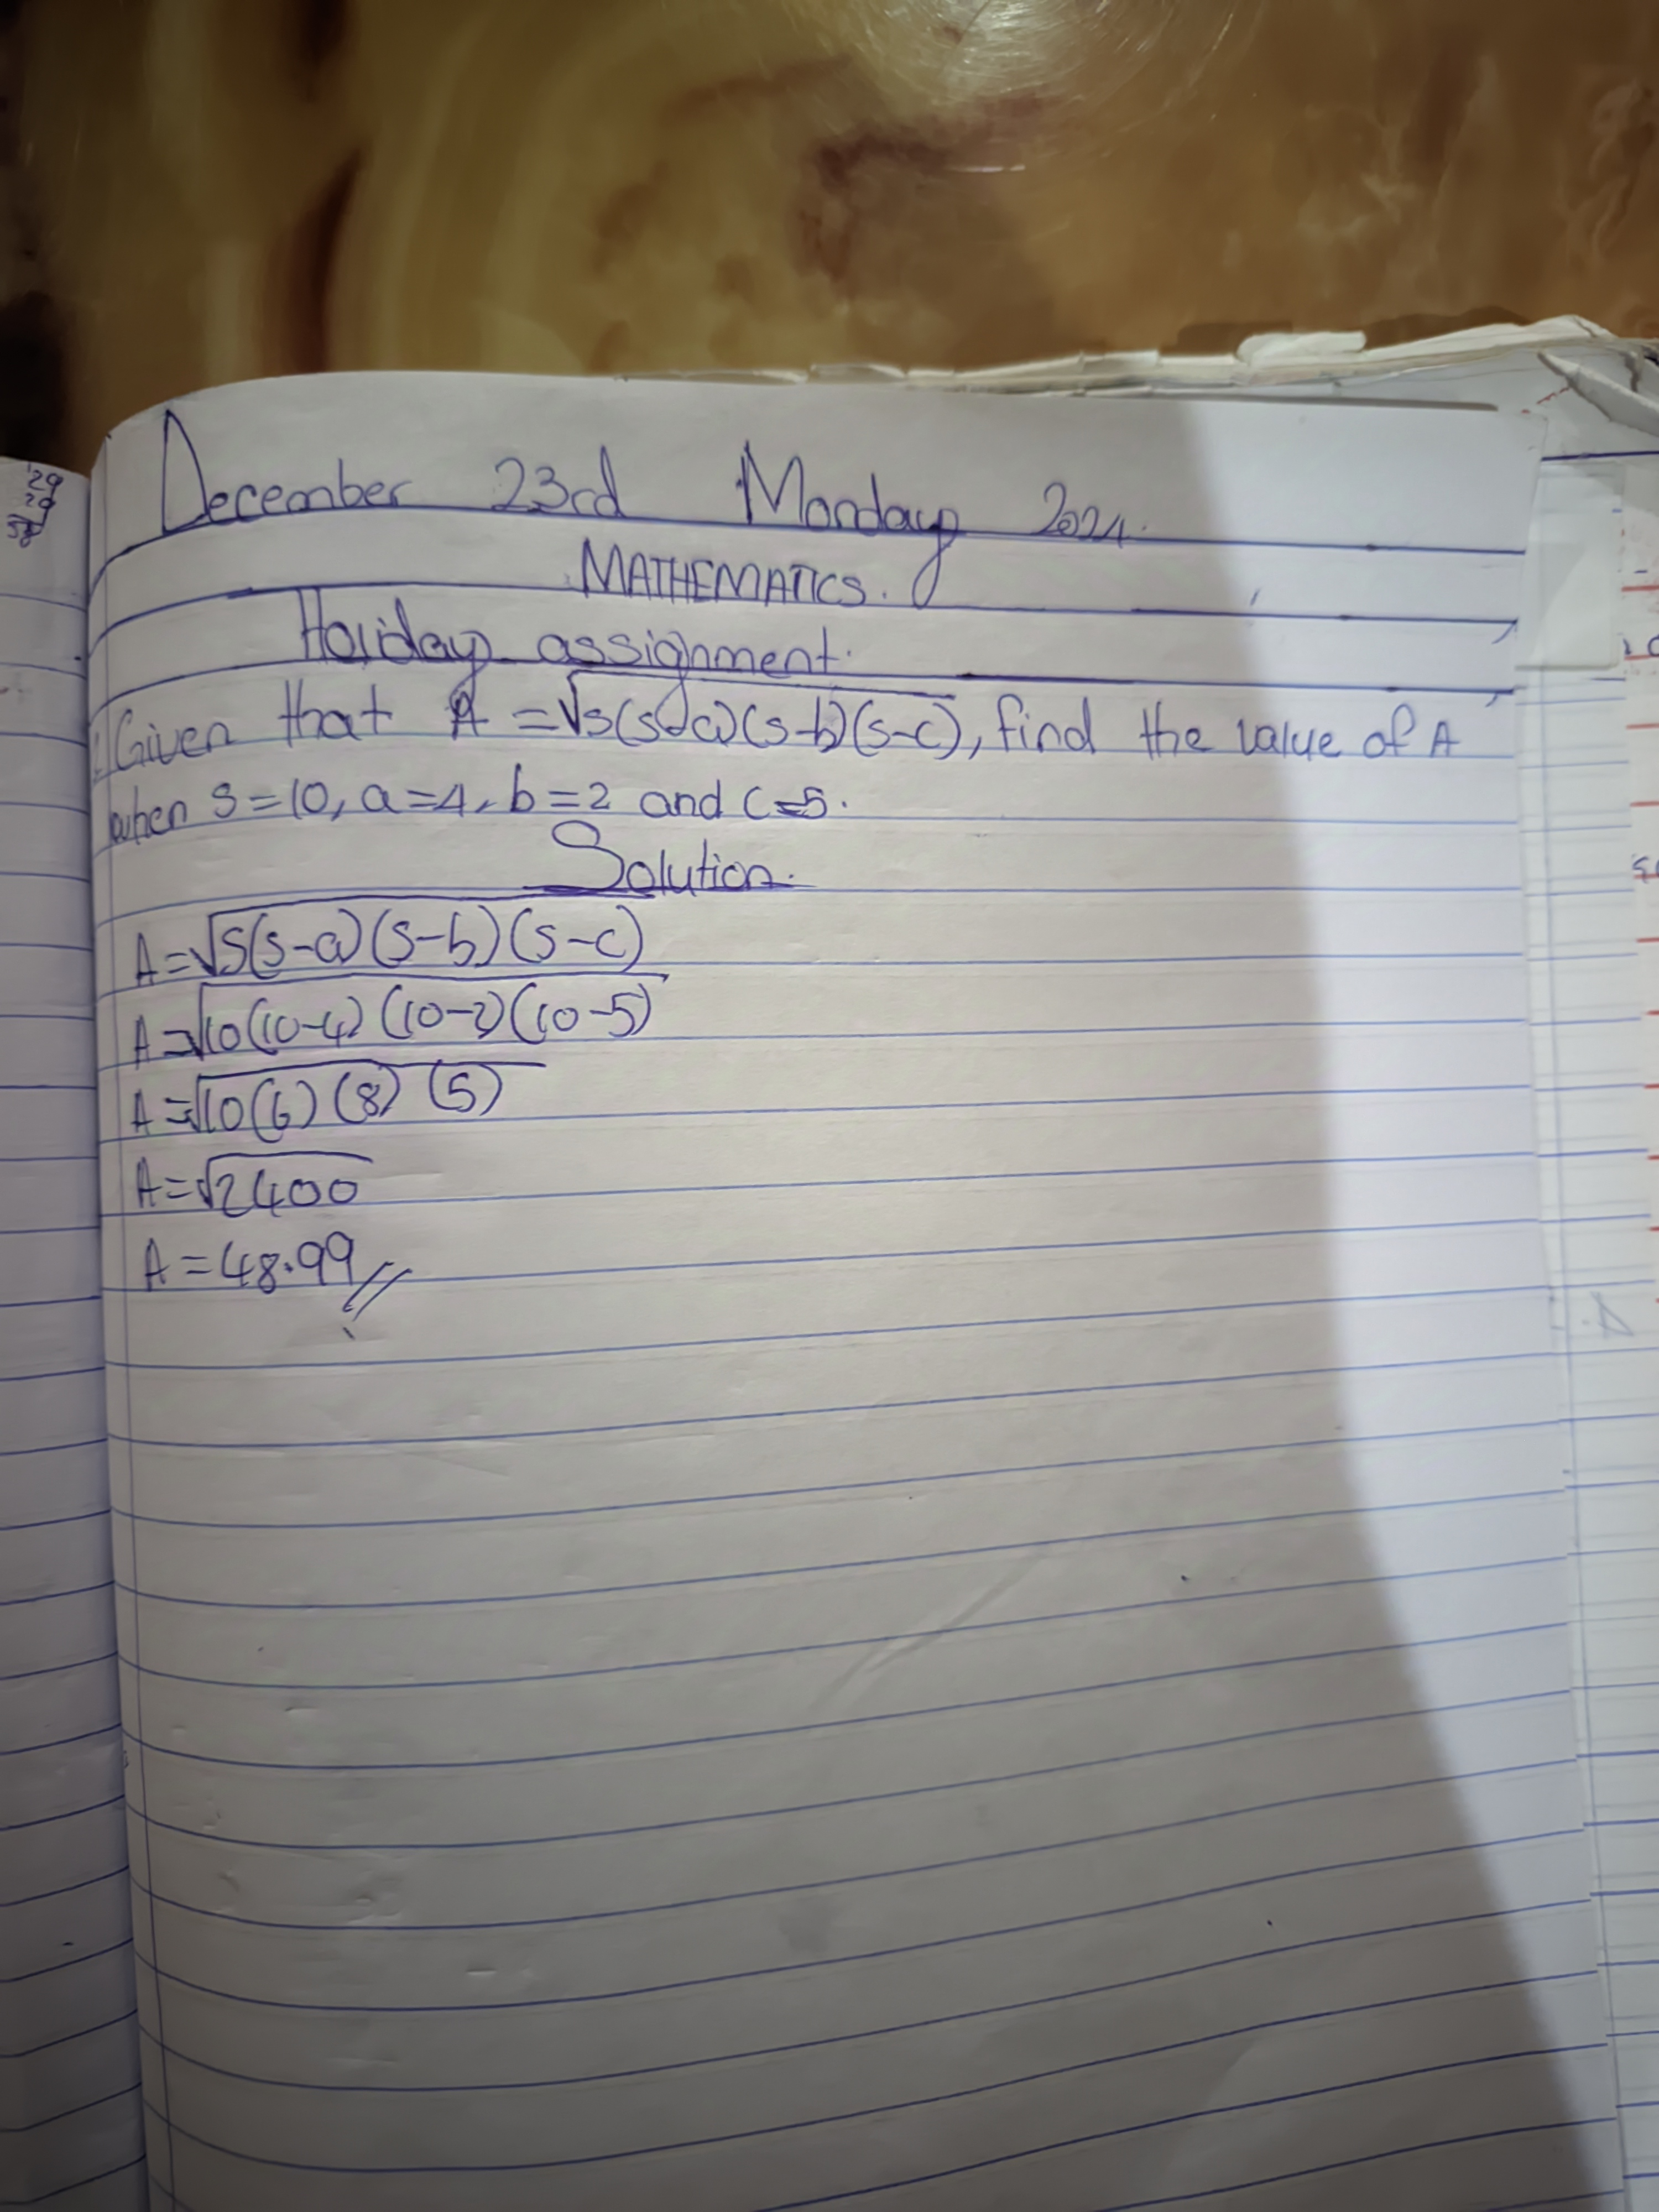 December 23rd Monday 2024.
MATHEMATICS.
Holiday assignment.
Given that A = √s(s-a)(s-b)(s-c), find the value of A
when s = 10, a = 4, b = 2 and c = 5.
Solution.
A = √s(s-a)(s-b)(s-c)
A = √10(10-4)(10-2)(10-5)
A = √10(6)(8)(5)
A = √2400
A = 48.99//
29
29
58